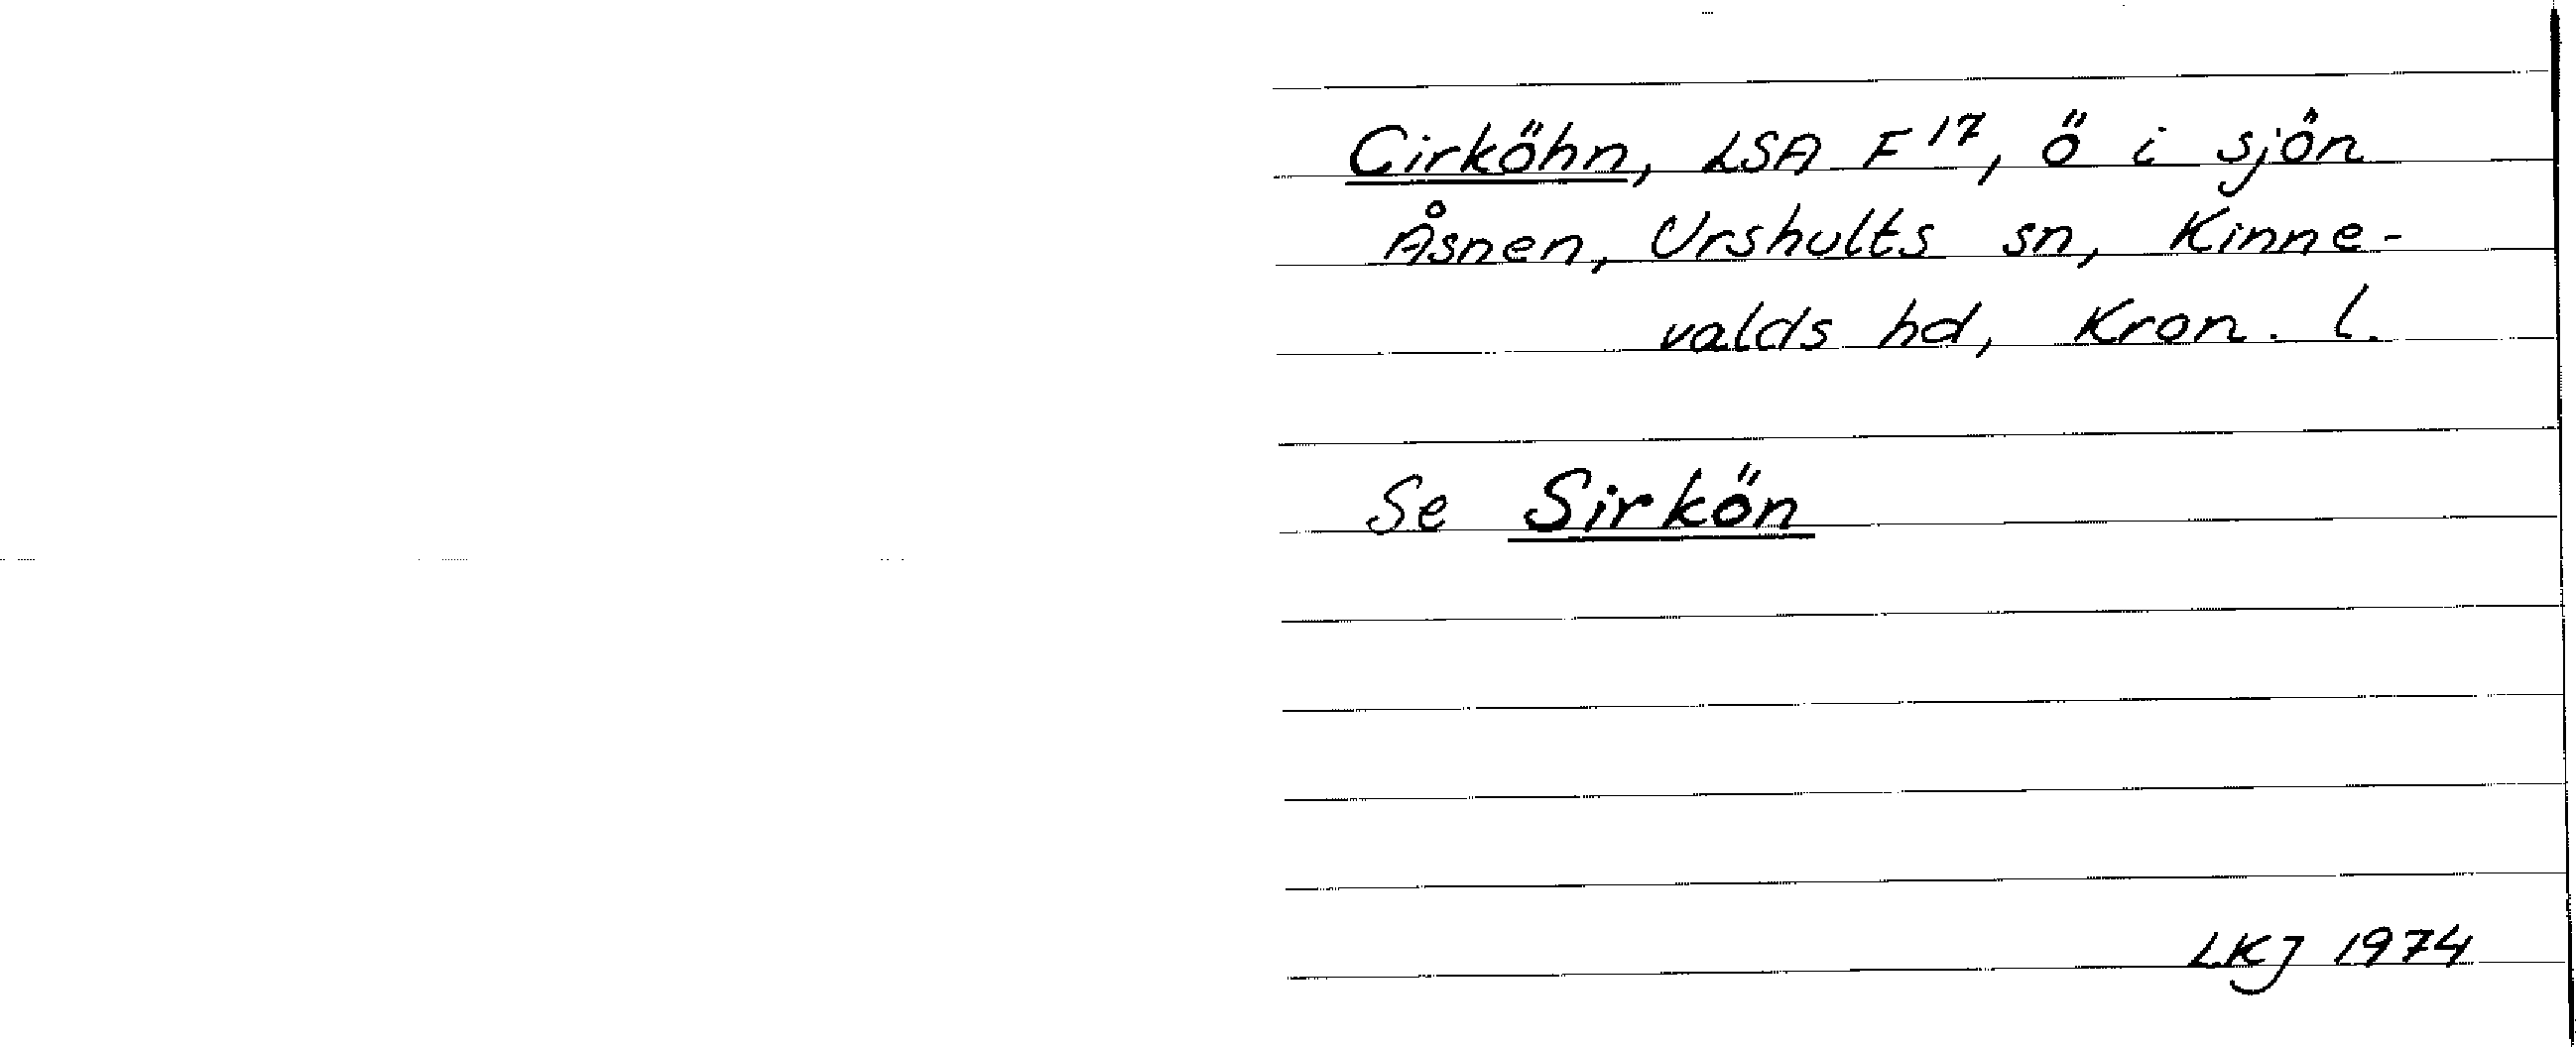 Cirköhn, LSA F17, ö i sjön
Åsnen, Urshults sn, Kinne-
valds hd, Kron. l.
Se Sirkön
LKJ 1974